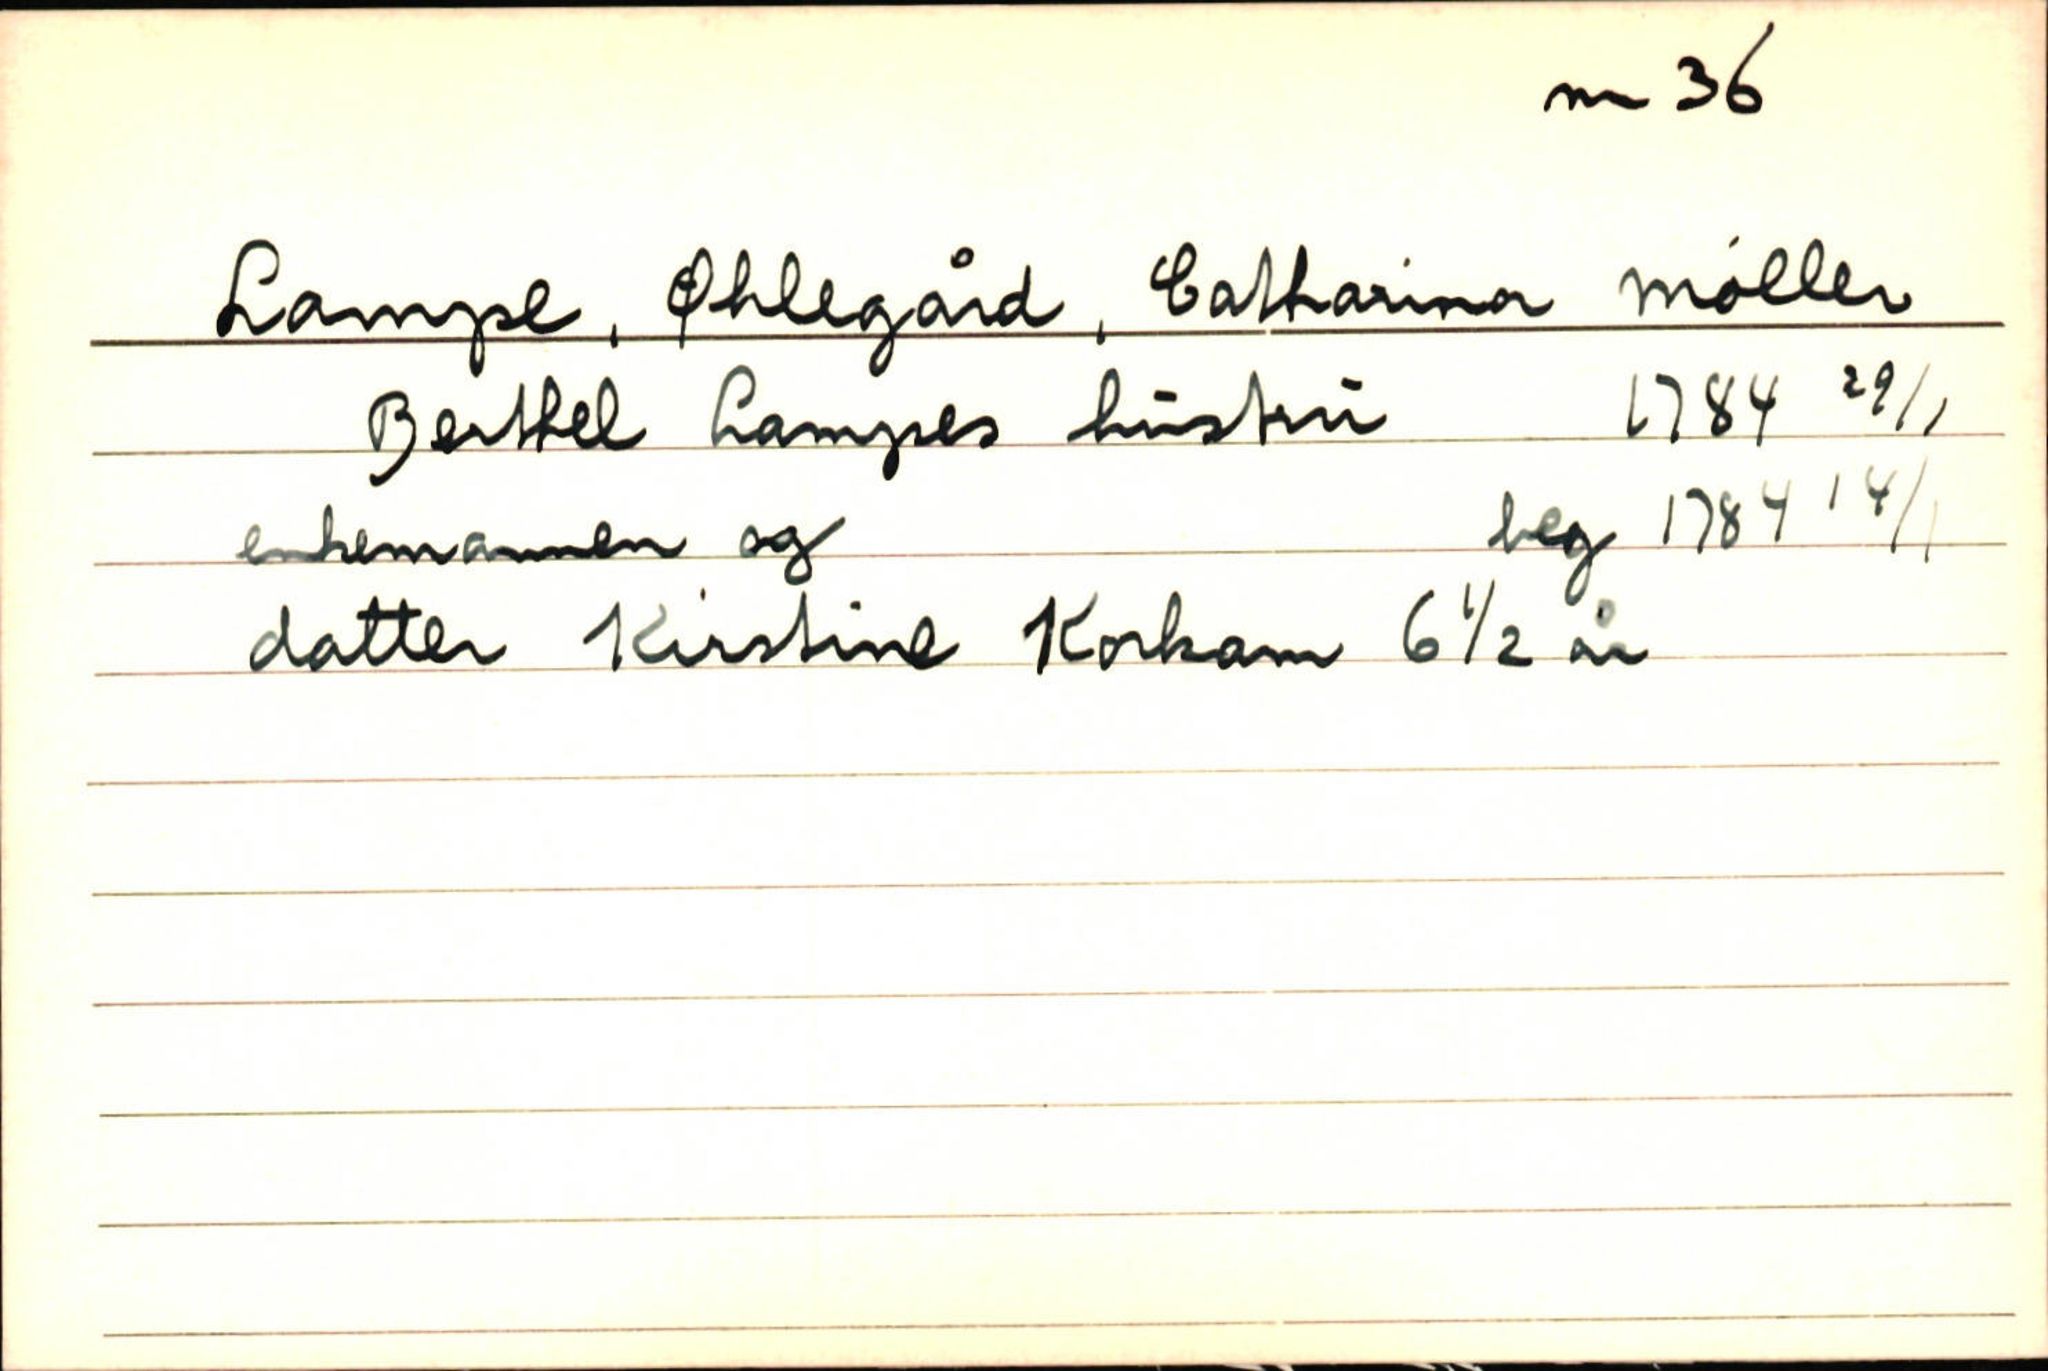 nr 36
Lampe, Øhlegård, Catharina Møller
Berthel Lampes hustru 1784 29/1
enkemannen og beg 1784 14/1
datter Kirstine Korkam 6 1/2 år